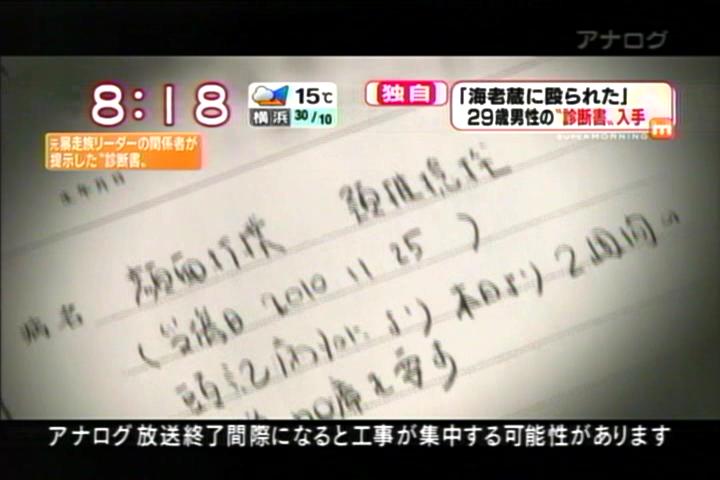 アナログ
8:18
15℃
横浜 30/10
独自
「海老蔵に殴られた」
29歳男性の〝診断書〟入手
SUPER MORNING
m
元暴走族リーダーの関係者が
提示した〝診断書〟
生年月日
病名 顔面打撲 頚椎捻挫
(受傷日 2010 11 25 )
頭記病名により 本日より 2週間の
を要す
アナログ放送終了間際になると工事が集中する可能性があります